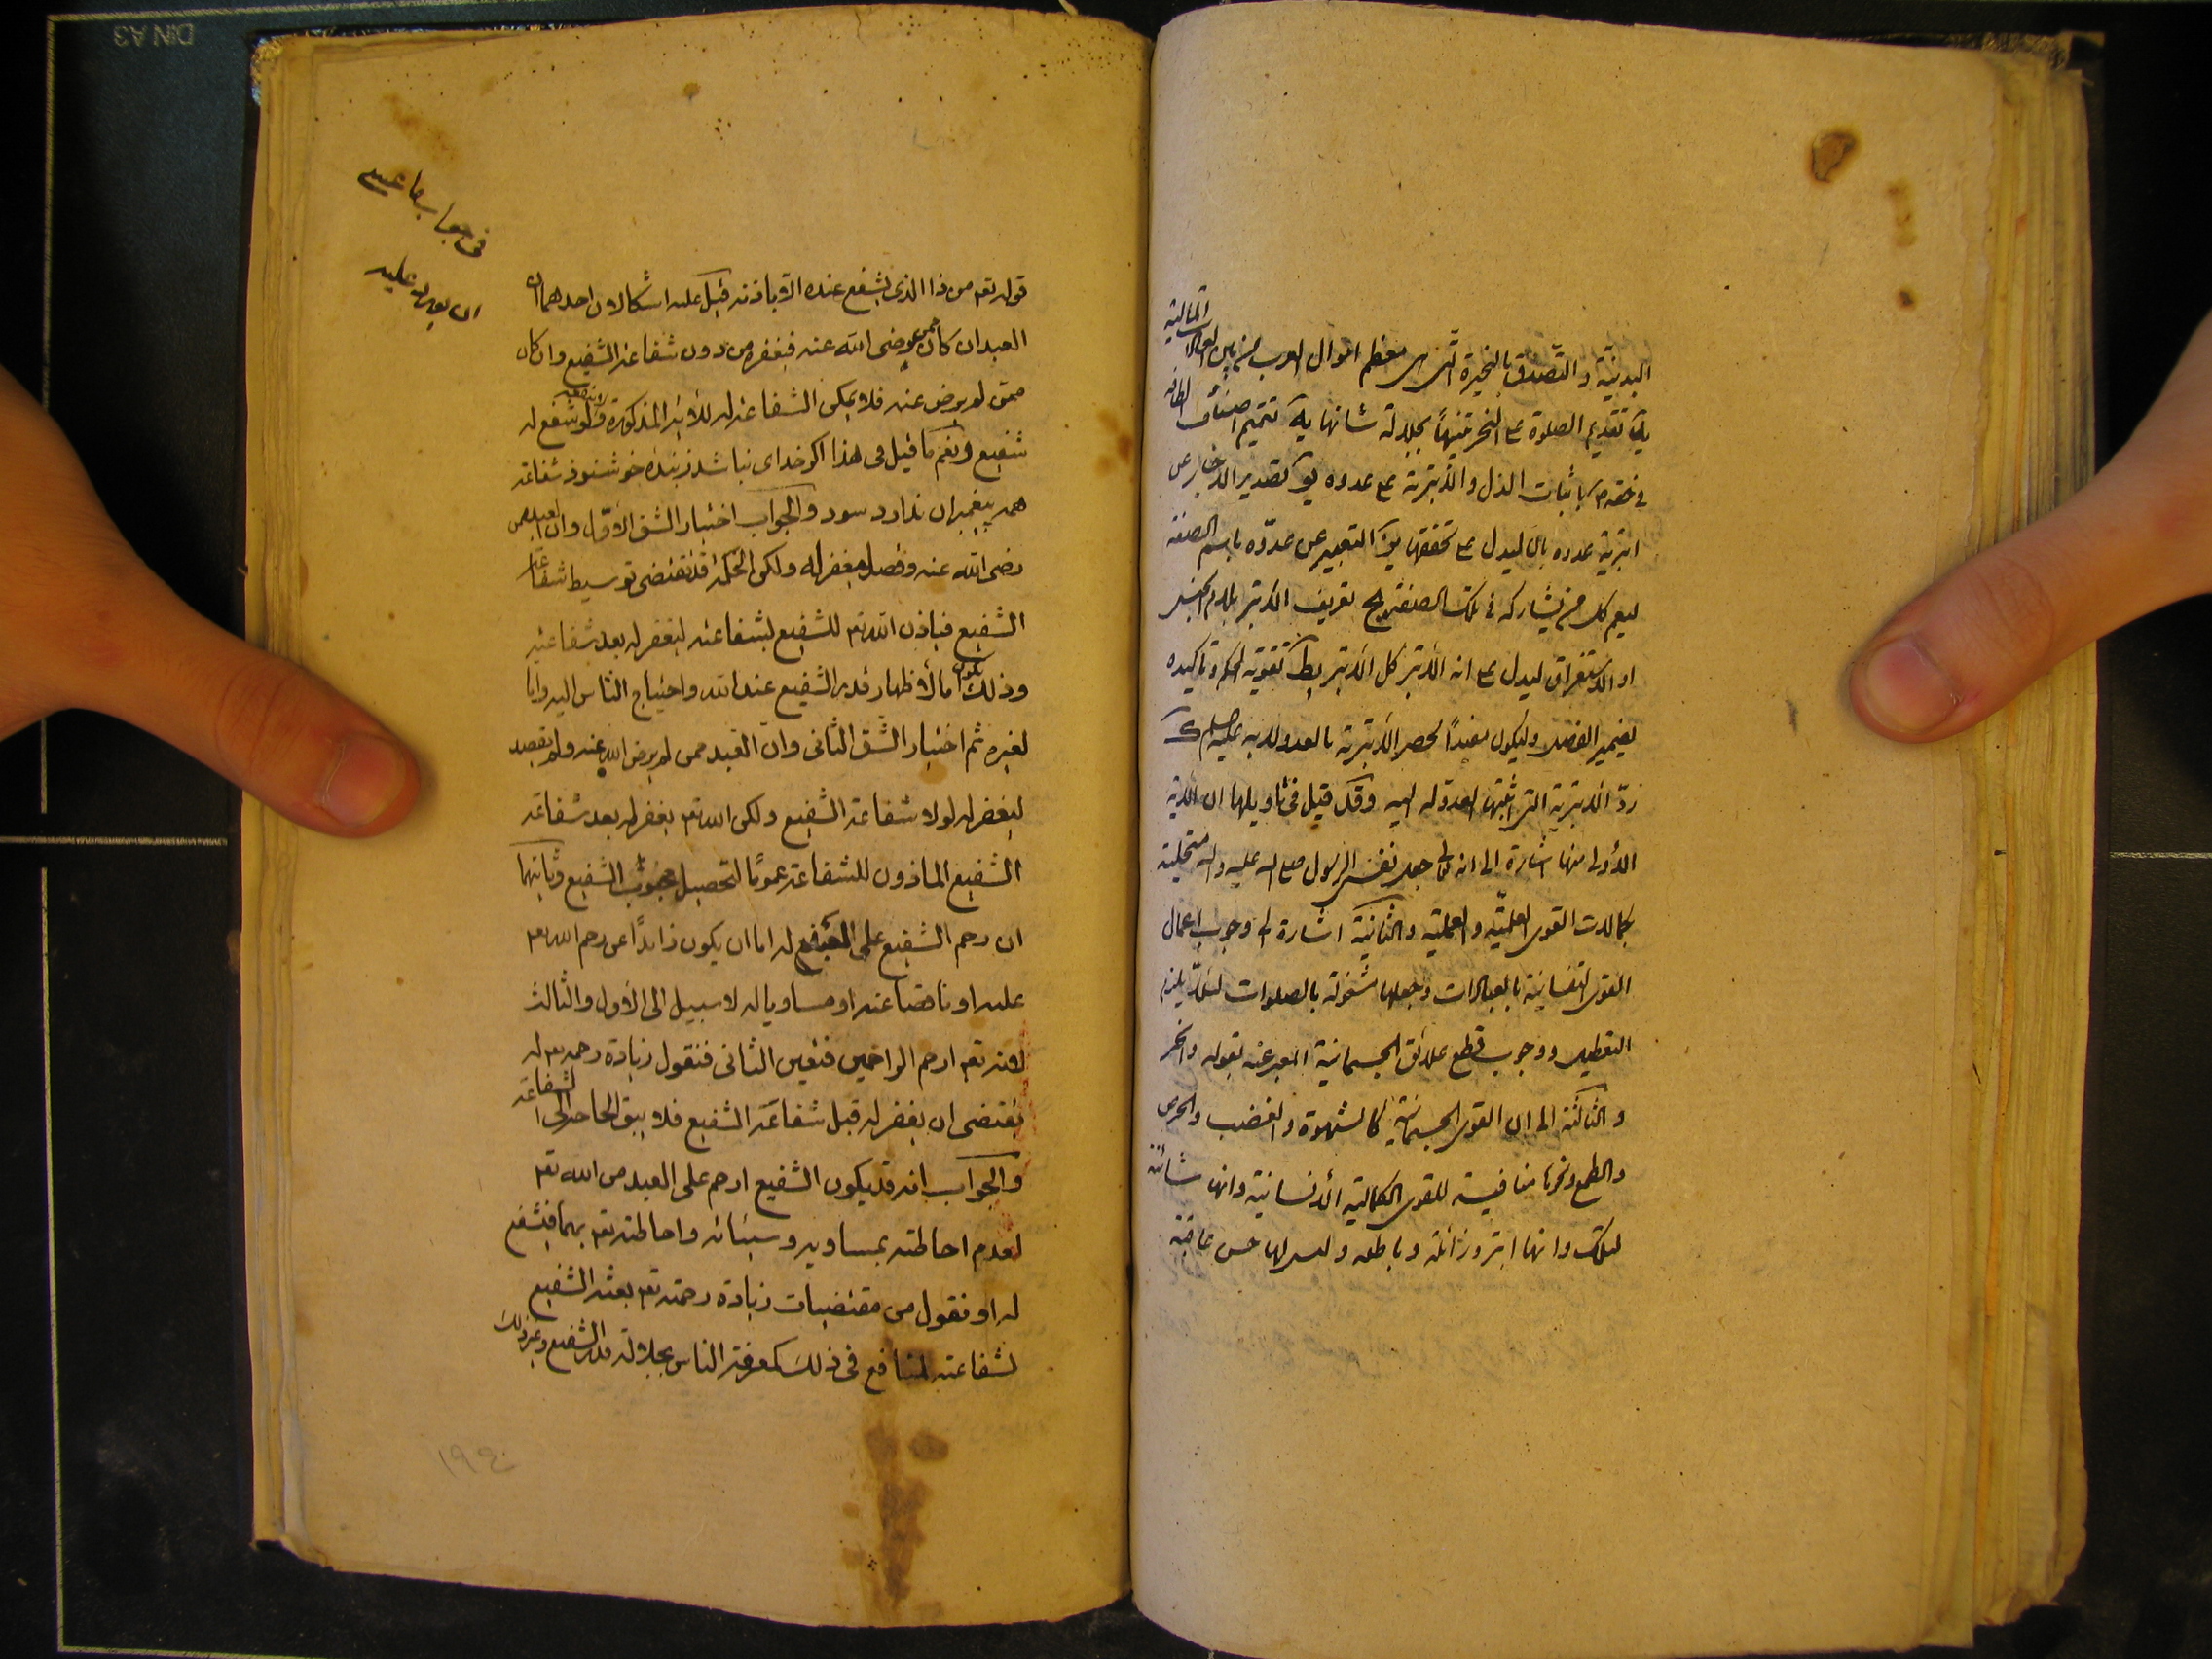 البدنية والتصدق بالنحيرة التي هى معظم اموال العرب من بين العبادات المالية
تقديم الصلوة على النحر تنبيهاً بجلالة شانها يه تتميم اصناف الطافه
في حقه باثبات الذل والابترية على عدوه يو تصدير الاخبار عن
ابترية عدوه بان ليدل على تحققها يز التعبير عن عدوه باسم الصفة
ليعم كل من يشاركه في تلك الصفة يح تعريف الابتر بلام الجنس
او الاستغراق ليدل على انه الابتر كل الابتر يط تقوية الحكم وتاكيده
بضمير الفصل وليكون مفيداً لحصر الابترية بالعدو لا به عليه السلام ك
ردّ الابترية التي اثبتها العدو له اليه وقد قيل في تاويلها ان الآية
الاولى منها اشارة الى انه تعالى جعل نفس الرسول صلى الله عليه واله متحلية
بكمالات القوى العلمية والعملية والثانية اشارة الى وجوب اعمال
القوى النفسانية بالعبادات وجعلها مشغولة بالصلوات لئلا يلزم
التعطيل ووجوب قطع علائق الجسمانية المعبر عنه بقوله وانحر
والثالثة الى ان القوى الجسمانية كالشهوة والغضب والحرص
والطمع ونحوها منافية للقوى الكمالية الانسانية وانها شانئة
لتلك وانها ابتر وزائلة وباطلة وليس لها حسن عاقبة
قوله تعم من ذا الذى يشفع عنده الا باذنه قيل عليه اشكالان احدهما ان
العبد ان كان ممن رضى الله عنه فيغفره من دون شفاعة الشفيع وان كان
ممن لم يرض عنه فلا يمكن الشفاعة له للآية المذكورة ولو شفع له
شفيع ونعم ما قيل فى هذا اكر خداى نباشد ز بنده خوشنود شفاعة
همه پيغمبران ندارد سود والجواب اختيار الشق الاول وان العبد ممن
رضى الله عنه وقصد ليغفر له ولكن الحكمة قد تقتضى توسيط شفاعة
الشفيع فياذن الله تعم للشفيع لشفاعته ليغفر له بعد شفاعته
وذلك يكون اما لاظهار قدر الشفيع عند الله واحتياج الناس اليه واما
لغيره ثم اختيار الشق الثانى وان العبد ممن لم يرض الله عنه ولم يقصد
ليغفر له لولا شفاعة الشفيع ولكن الله تعم يغفر له بعد شفاعة
الشفيع الماذون للشفاعة عموما لتحصيل الشفيع وثانيهما
ان رحم الشفيع على المشفع له اما ان يكون زايداً عن رحم الله تعم
عليه او ناقصا عنه او مساويا له لا سبيل الى الاول والثالث
لانه تعم ارحم الراحمين فتعين الثانى فنقول زيادة رحمه تعم له
تقتضى ان يغفر له قبل شفاعة الشفيع فلا يبق الحاجة الى الشفاعة
والجواب انه قد يكون الشفيع ارحم على العبد من الله تعم
لعدم احاطته بمساويه وسيئاته واحاطته تعم بهما فيشفع
له او نقول من مقتضيات زيادة رحمته تعم بعثه الشفيع
لشفاعته لمنافع فى ذلك كمعرفة الناس بجلالة قدر الشفيع وغير ذلك
ان يورد عليه
١٩٤